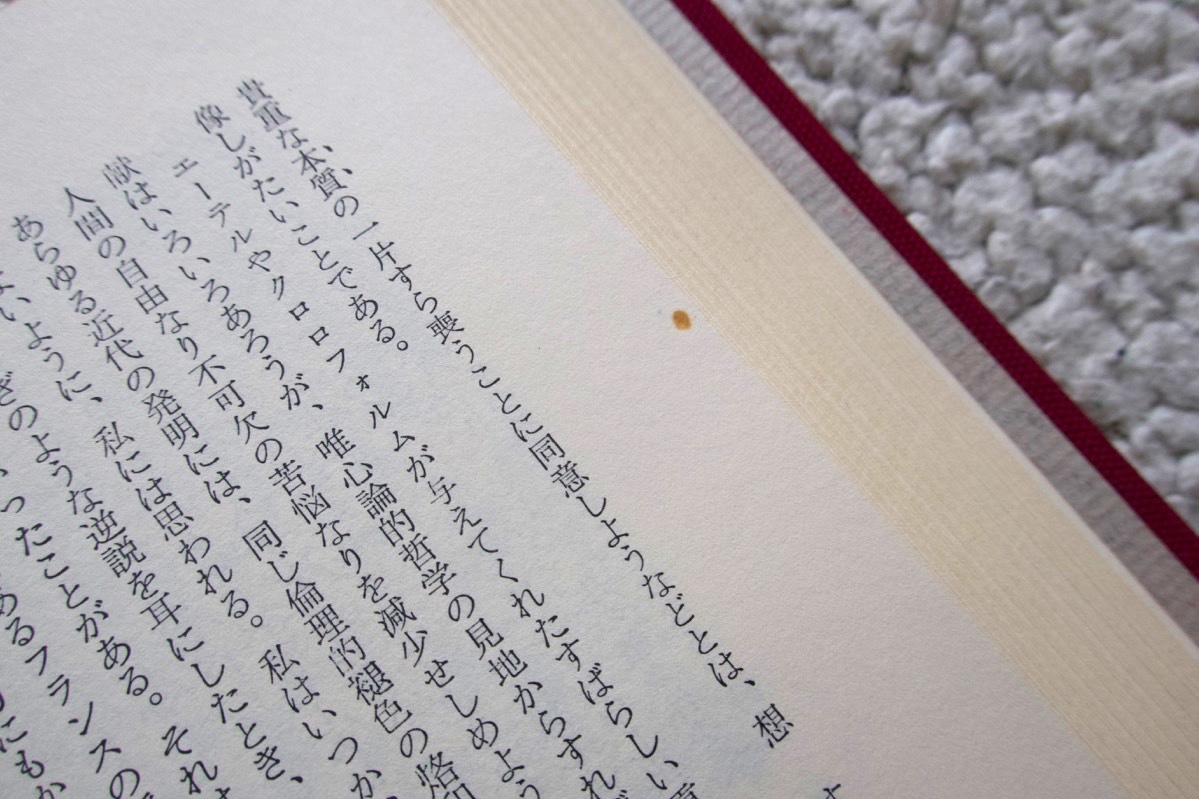 貴重な本質の一片すら喪うことに同意しようなどとは、想
像しがたいことである。
エーテルやクロロフォルムが与えてくれたすばらしい
献はいろいろあろうが、唯心論的哲学の見地からすれ
人間の自由なり不可欠の苦悩なりを減少せしめよう
あらゆる近代の発明には、同じ倫理的褪色の烙印
ように、私には思われる。私はいつか
ぎのような逆説を耳にしたとき、
ったことがある。それ
あるフランスの
にもか